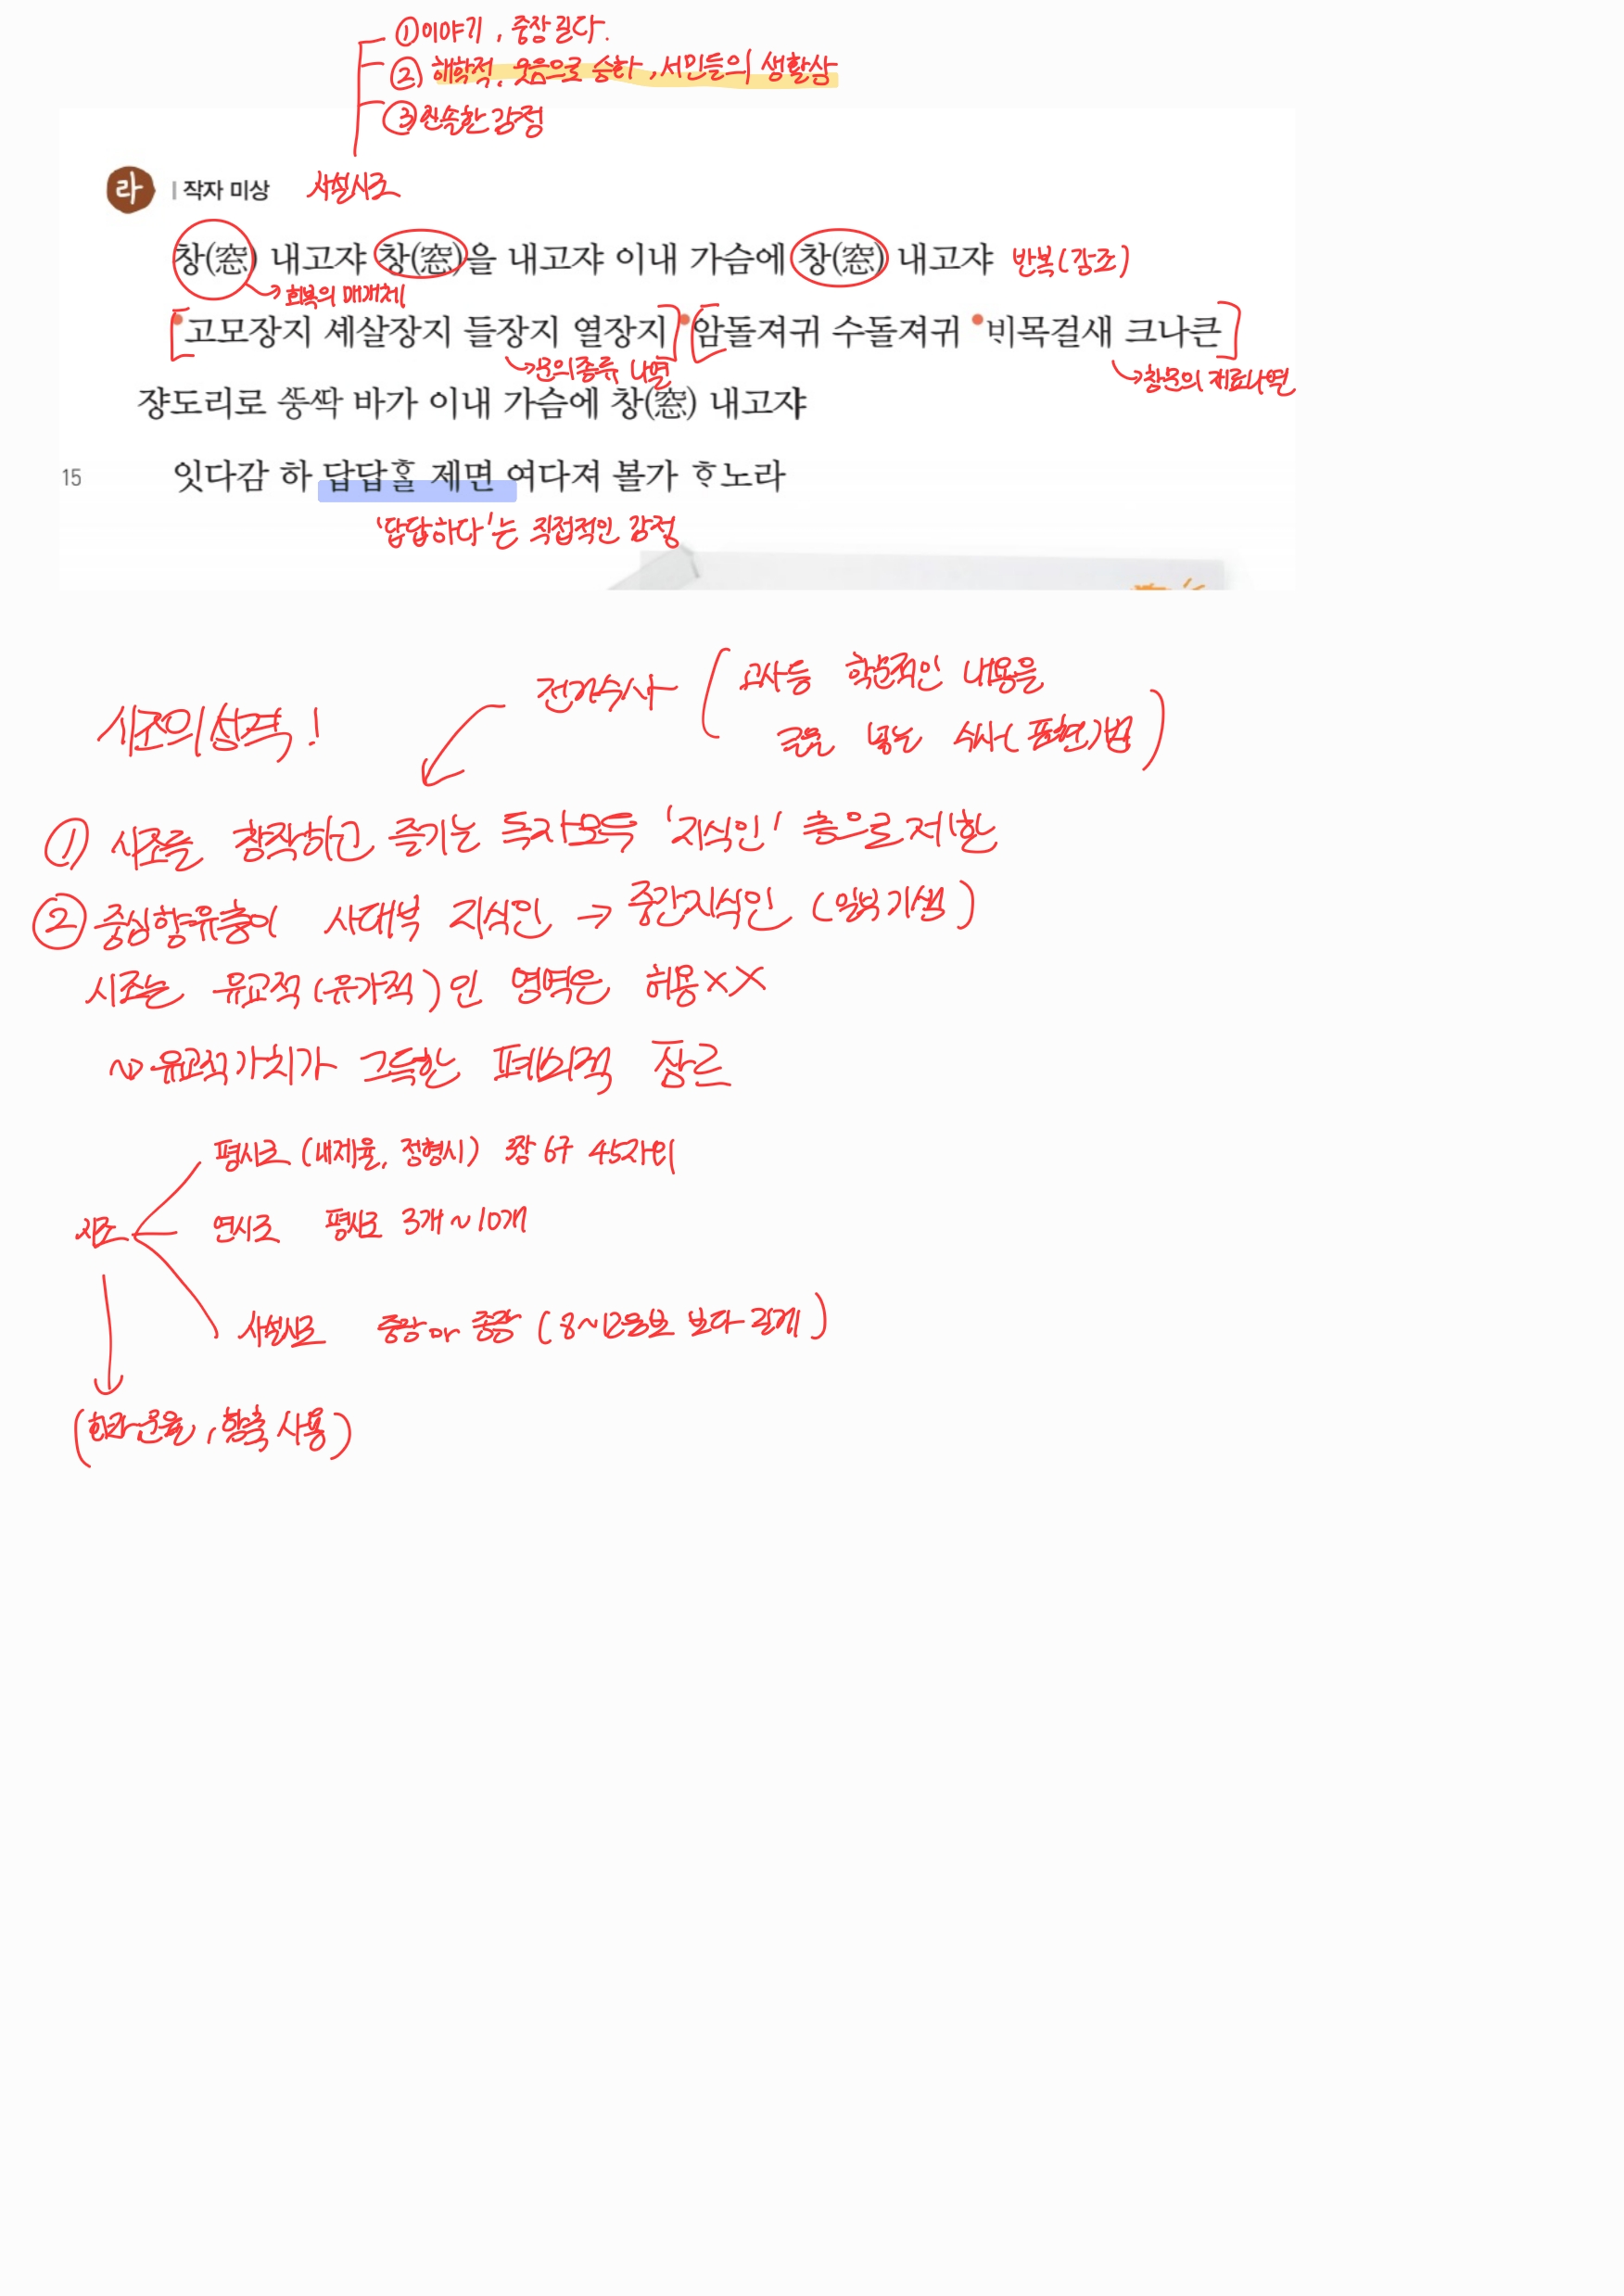 ①이야기, 중장 길다.
② 해학적, 웃음으로 승화, 서민들의 생활상
③진솔한 감정
라 | 작자 미상 사설시조
창(窓) 내고쟈 창(窓)을 내고쟈 이내 가슴에 창(窓) 내고쟈 반복(강조)
→회복의 매개체
고모장지 셰살장지 들장지 열장지 암돌져귀 수돌져귀 ᄇᆡ목걸새 크나큰
→문의종류 나열
→창문의 재료나열
쟝도리로 ᄯᅮᆼ싹 바가 이내 가슴에 창(窓) 내고쟈
15 잇다감 하 답답ᄒᆞᆯ 제면 여다져 볼가 ᄒᆞ노라
'답답하다'는 직접적인 감정
시조의 성격!
전거수사 (고사등 학문적인 내용을
글을 넣는 수사(표현)기법)
① 시조를 창작하고 즐기는 독자모두 '지식인' 층으로 제한
② 중심향유층이 사대부 지식인 → 중간지식인 (일부기생)
시조는 유교적(유가적)인 영역은 허용××
~> 유교적가치가 그득한 폐쇄적 장르
평시조 (내제율, 정형시) 3장 6구 45자내외
시조
연시조 평시조 3개~10개
사설시조 중장 or 종장 (8~12음보 보다 길게)
(운율, 함축 사용)